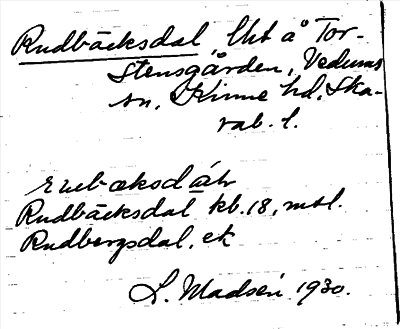 Rudbäcksdal lht å Tor-
stensgården, Vedums
sn, Kinne hd, Ska-
rab. l.
rubæksdāɫ
Rudbäcksdal kb. 18, mtl.
Rudbergsdal, ek
L. Madsén 1930.